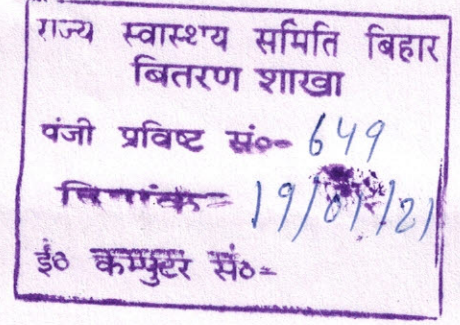 राज्य स्वास्थ्य समिति बिहार
बितरण शाखा
पंजी प्रविष्ट सं०- 649
दिनांक- 19/01/21
ई० कम्पुटर सं०-